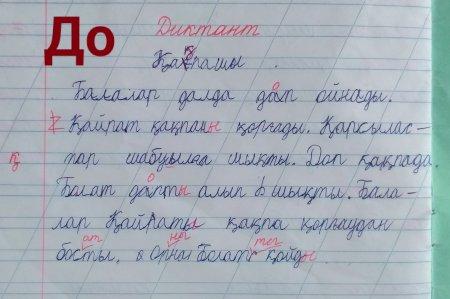 До
Диктант
Қақпашы.
Балалар далда доп ойнады.
Қайрат қақпаны қорғады. Қарсылас-
тар шабуылға шықты. Доп қақпада.
қ
Болат допты алып шықты. Бала-
лар Қайратты қақпа қорғаудан
ат ны тег
босты, Орна Болат қойды